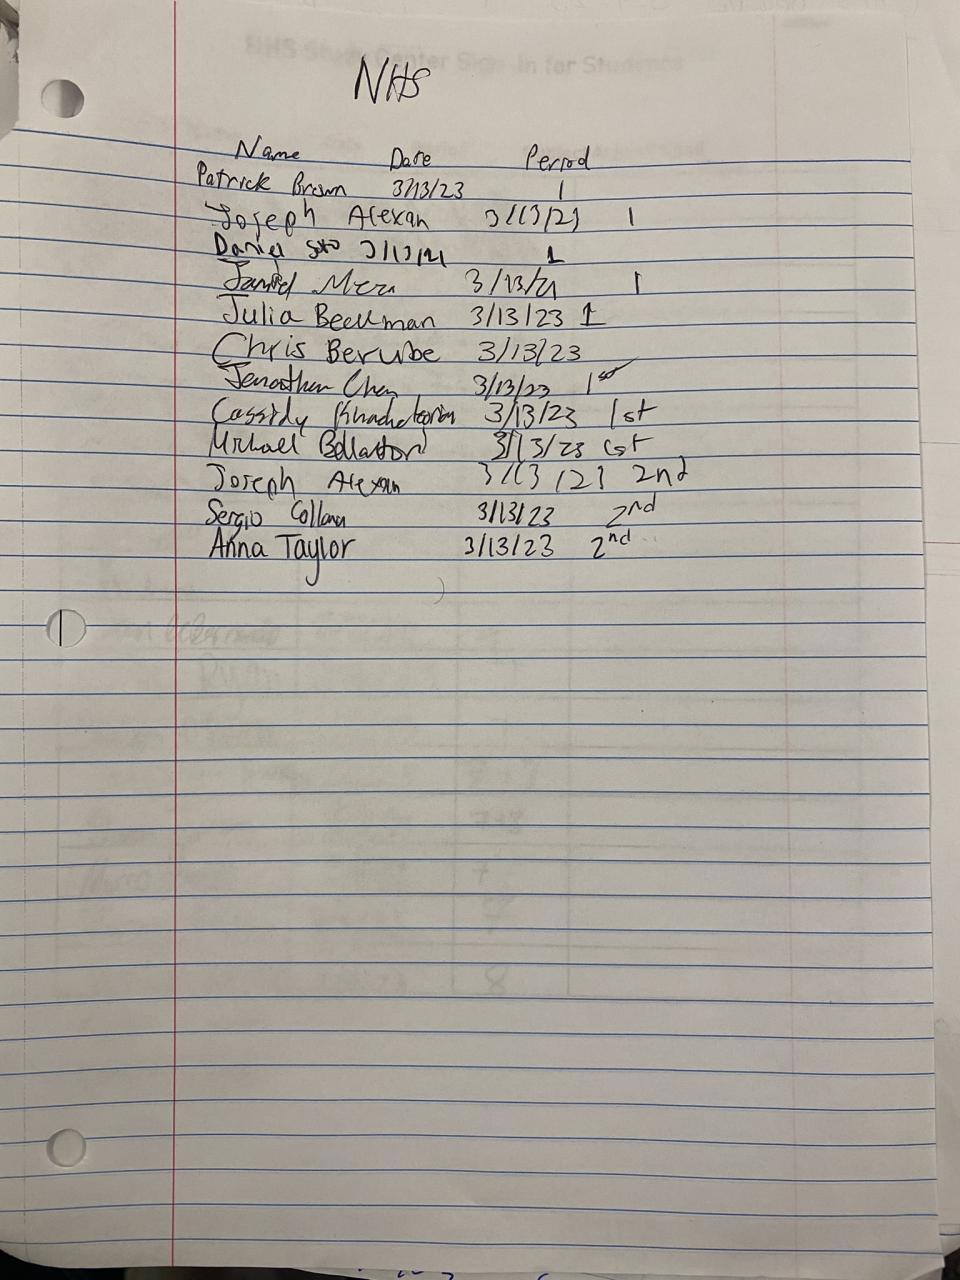 NHS
Name Date Period
Patrick Brown 3/13/23 1
Joseph Alexan 3/13/23 1
Daniel Soto 3/13/21 1
3/13/21 1
Julia Beekman 3/13/23 1
Chris Berube 3/13/23
Chen 3/13/23 1st
Cassidy 3/13/23 1st
Michael 3/13/23 1st
Joseph Alexan 3/13/23 2nd
Sergio 3/13/23 2nd
Anna Taylor 3/13/23 2nd